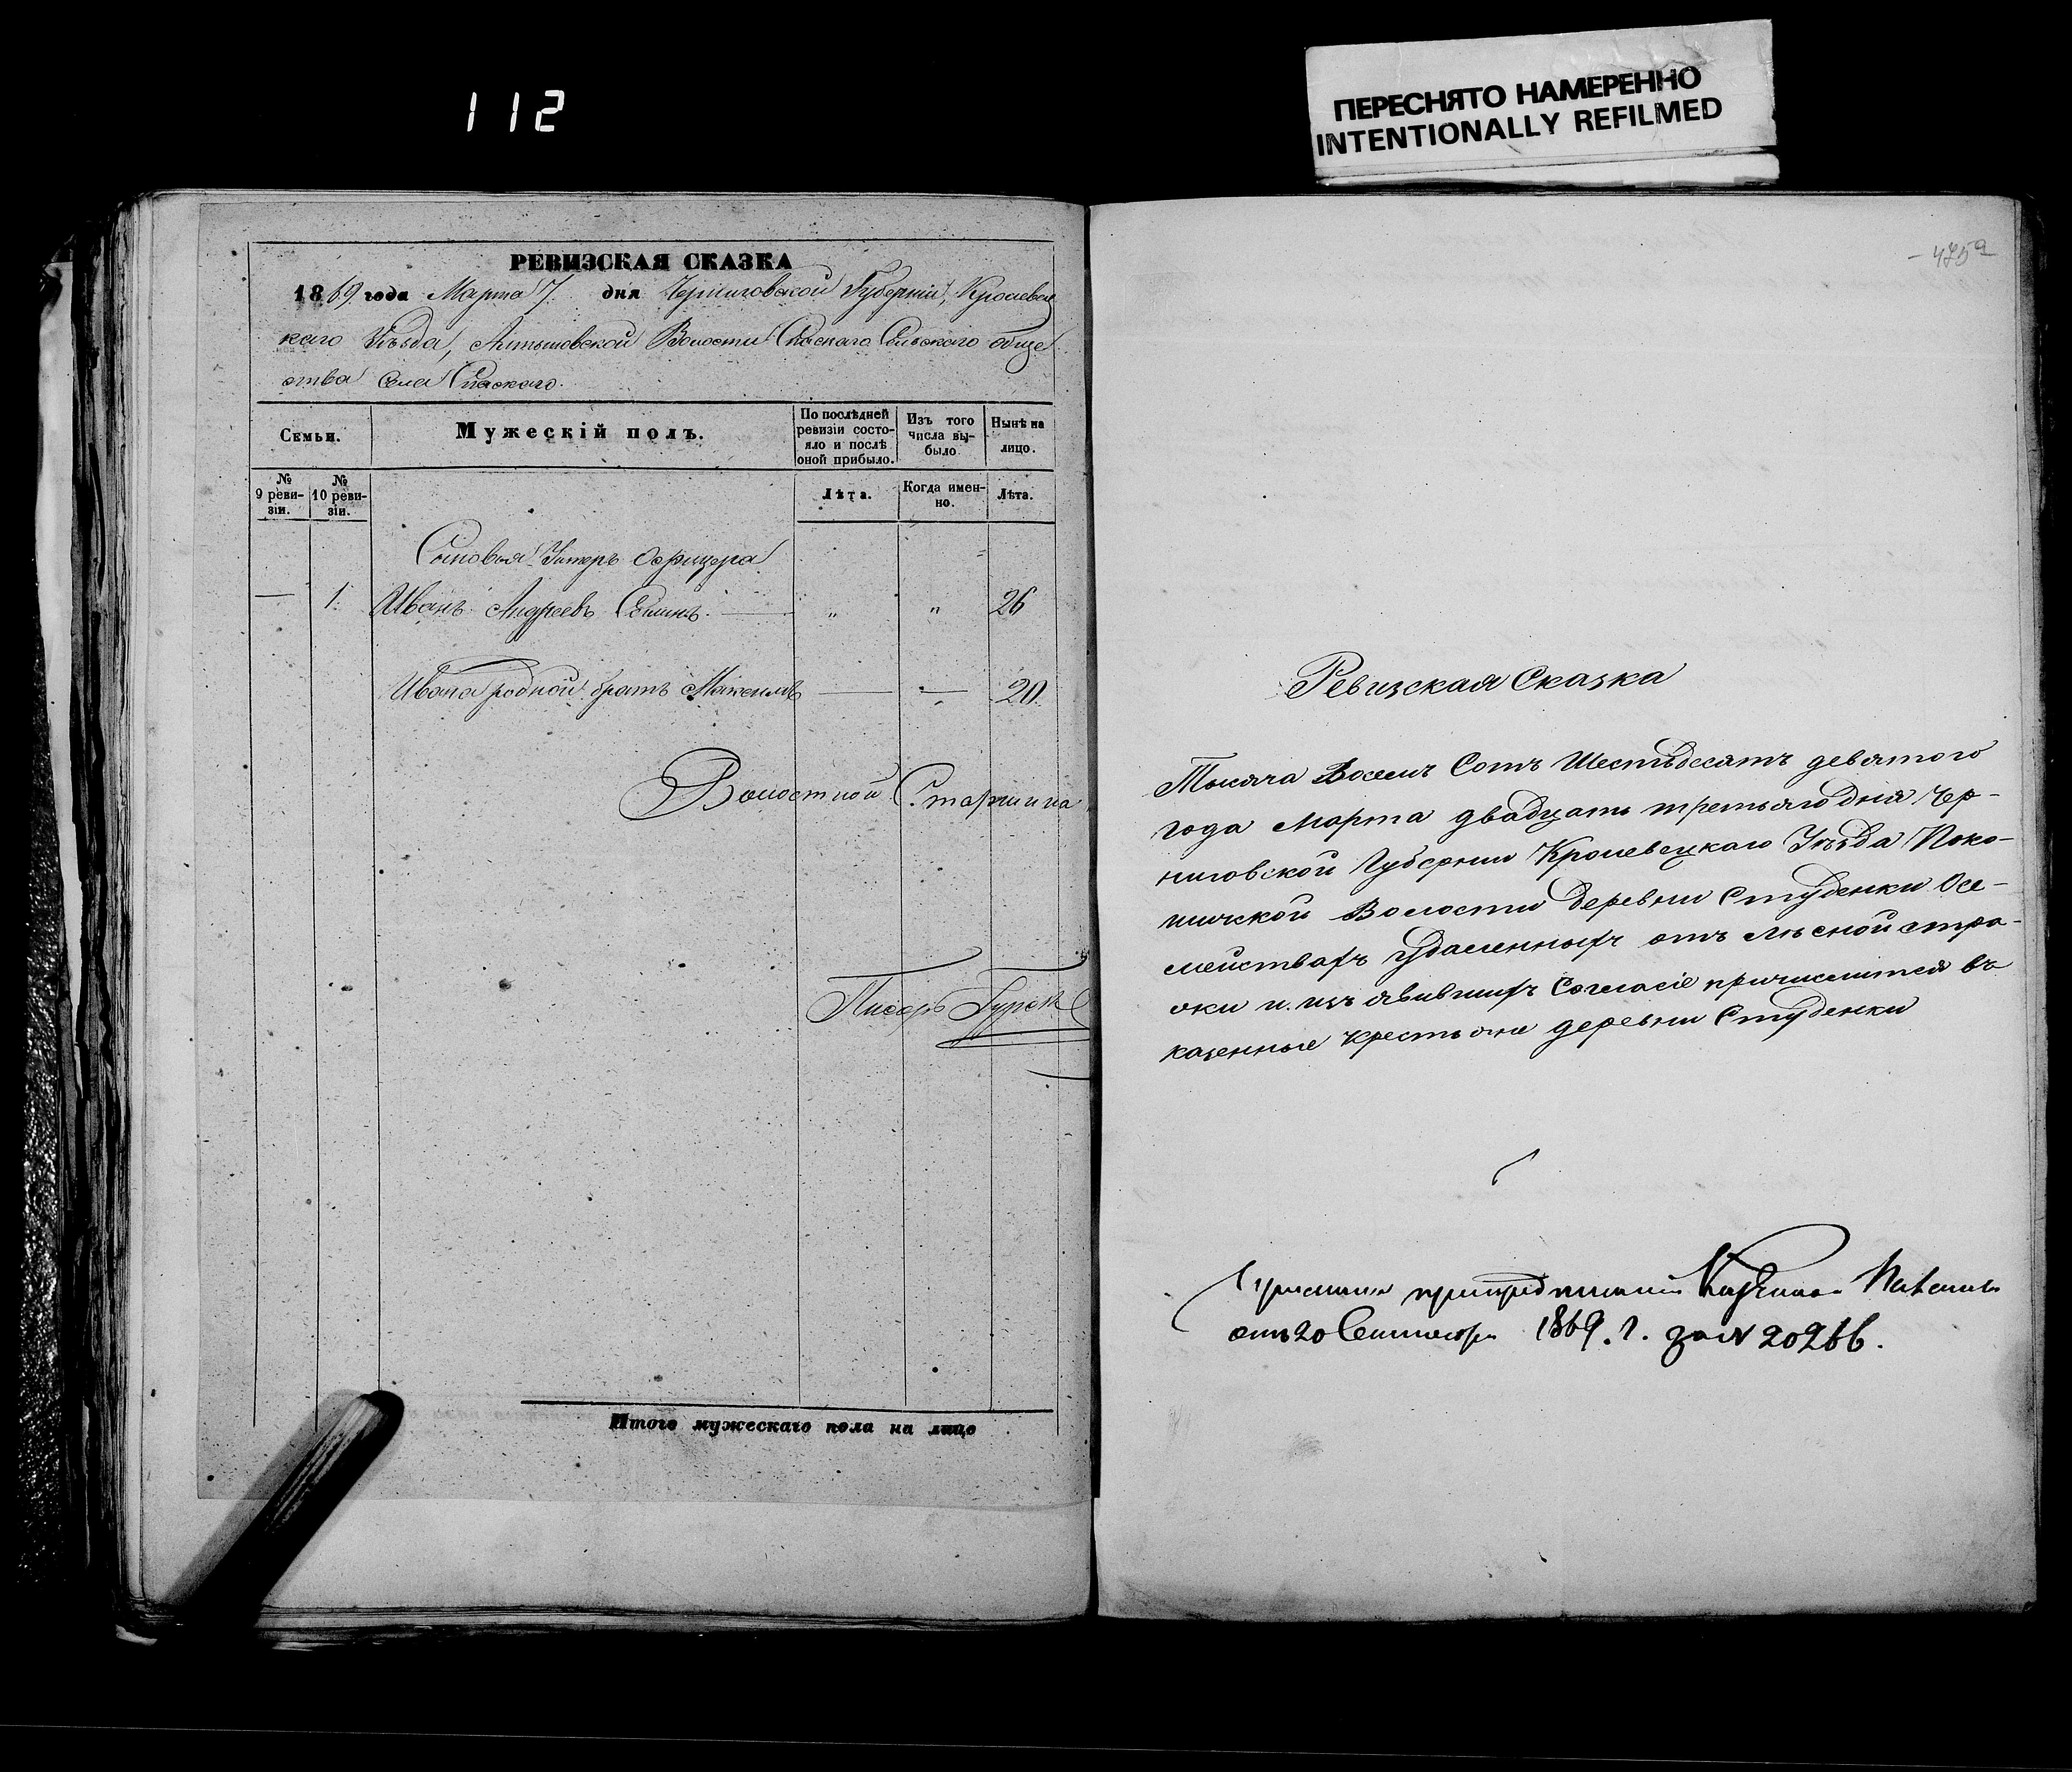 112
ПЕРЕСНЯТО НАМЕРЕННО
INTENTIONALLY REFILMED
РЕВИЗСКАЯ СКАЗКА
1869 года Марта 7 дня Черниговской Губерніи, Кролевец
каго Уѣзда, Волости Спаскаго Сельскаго обще
ства Села Спаскаго.
Семьи.
Мужескій полъ.
По послѣдней ревизіи состояло и послѣ оной прибыло.
Изъ того числа выбыло
Нынѣ на лицо.
№ 9 ревизіи.
№ 10 ревизіи.
Лѣта.
Когда именно.
Лѣта.
Сыновья Унтеръ Офицера
— 1. Иванъ Андреевъ „ „ 26
Ивана родной братъ Максимъ — — 20.
Волостной Старшина
Писарь
Итого мужескаго пола на лицо
475а
Ревизская Сказка
Тысяча Восемь Сотъ Шестьдесятъ девятого
года Марта двадцать третьяго дня Чер-
ниговской Губернии Кролевецкаго Уѣзда Поко-
шичской Волости деревни Студенки Осе-
мействахъ удаленныхъ отъ лѣсной стра-
жи и изъявившихъ Согласіе причислится въ
казенные крестьяне деревни Студенки
отъ 20 Сентября 1869. г. за № 20266.